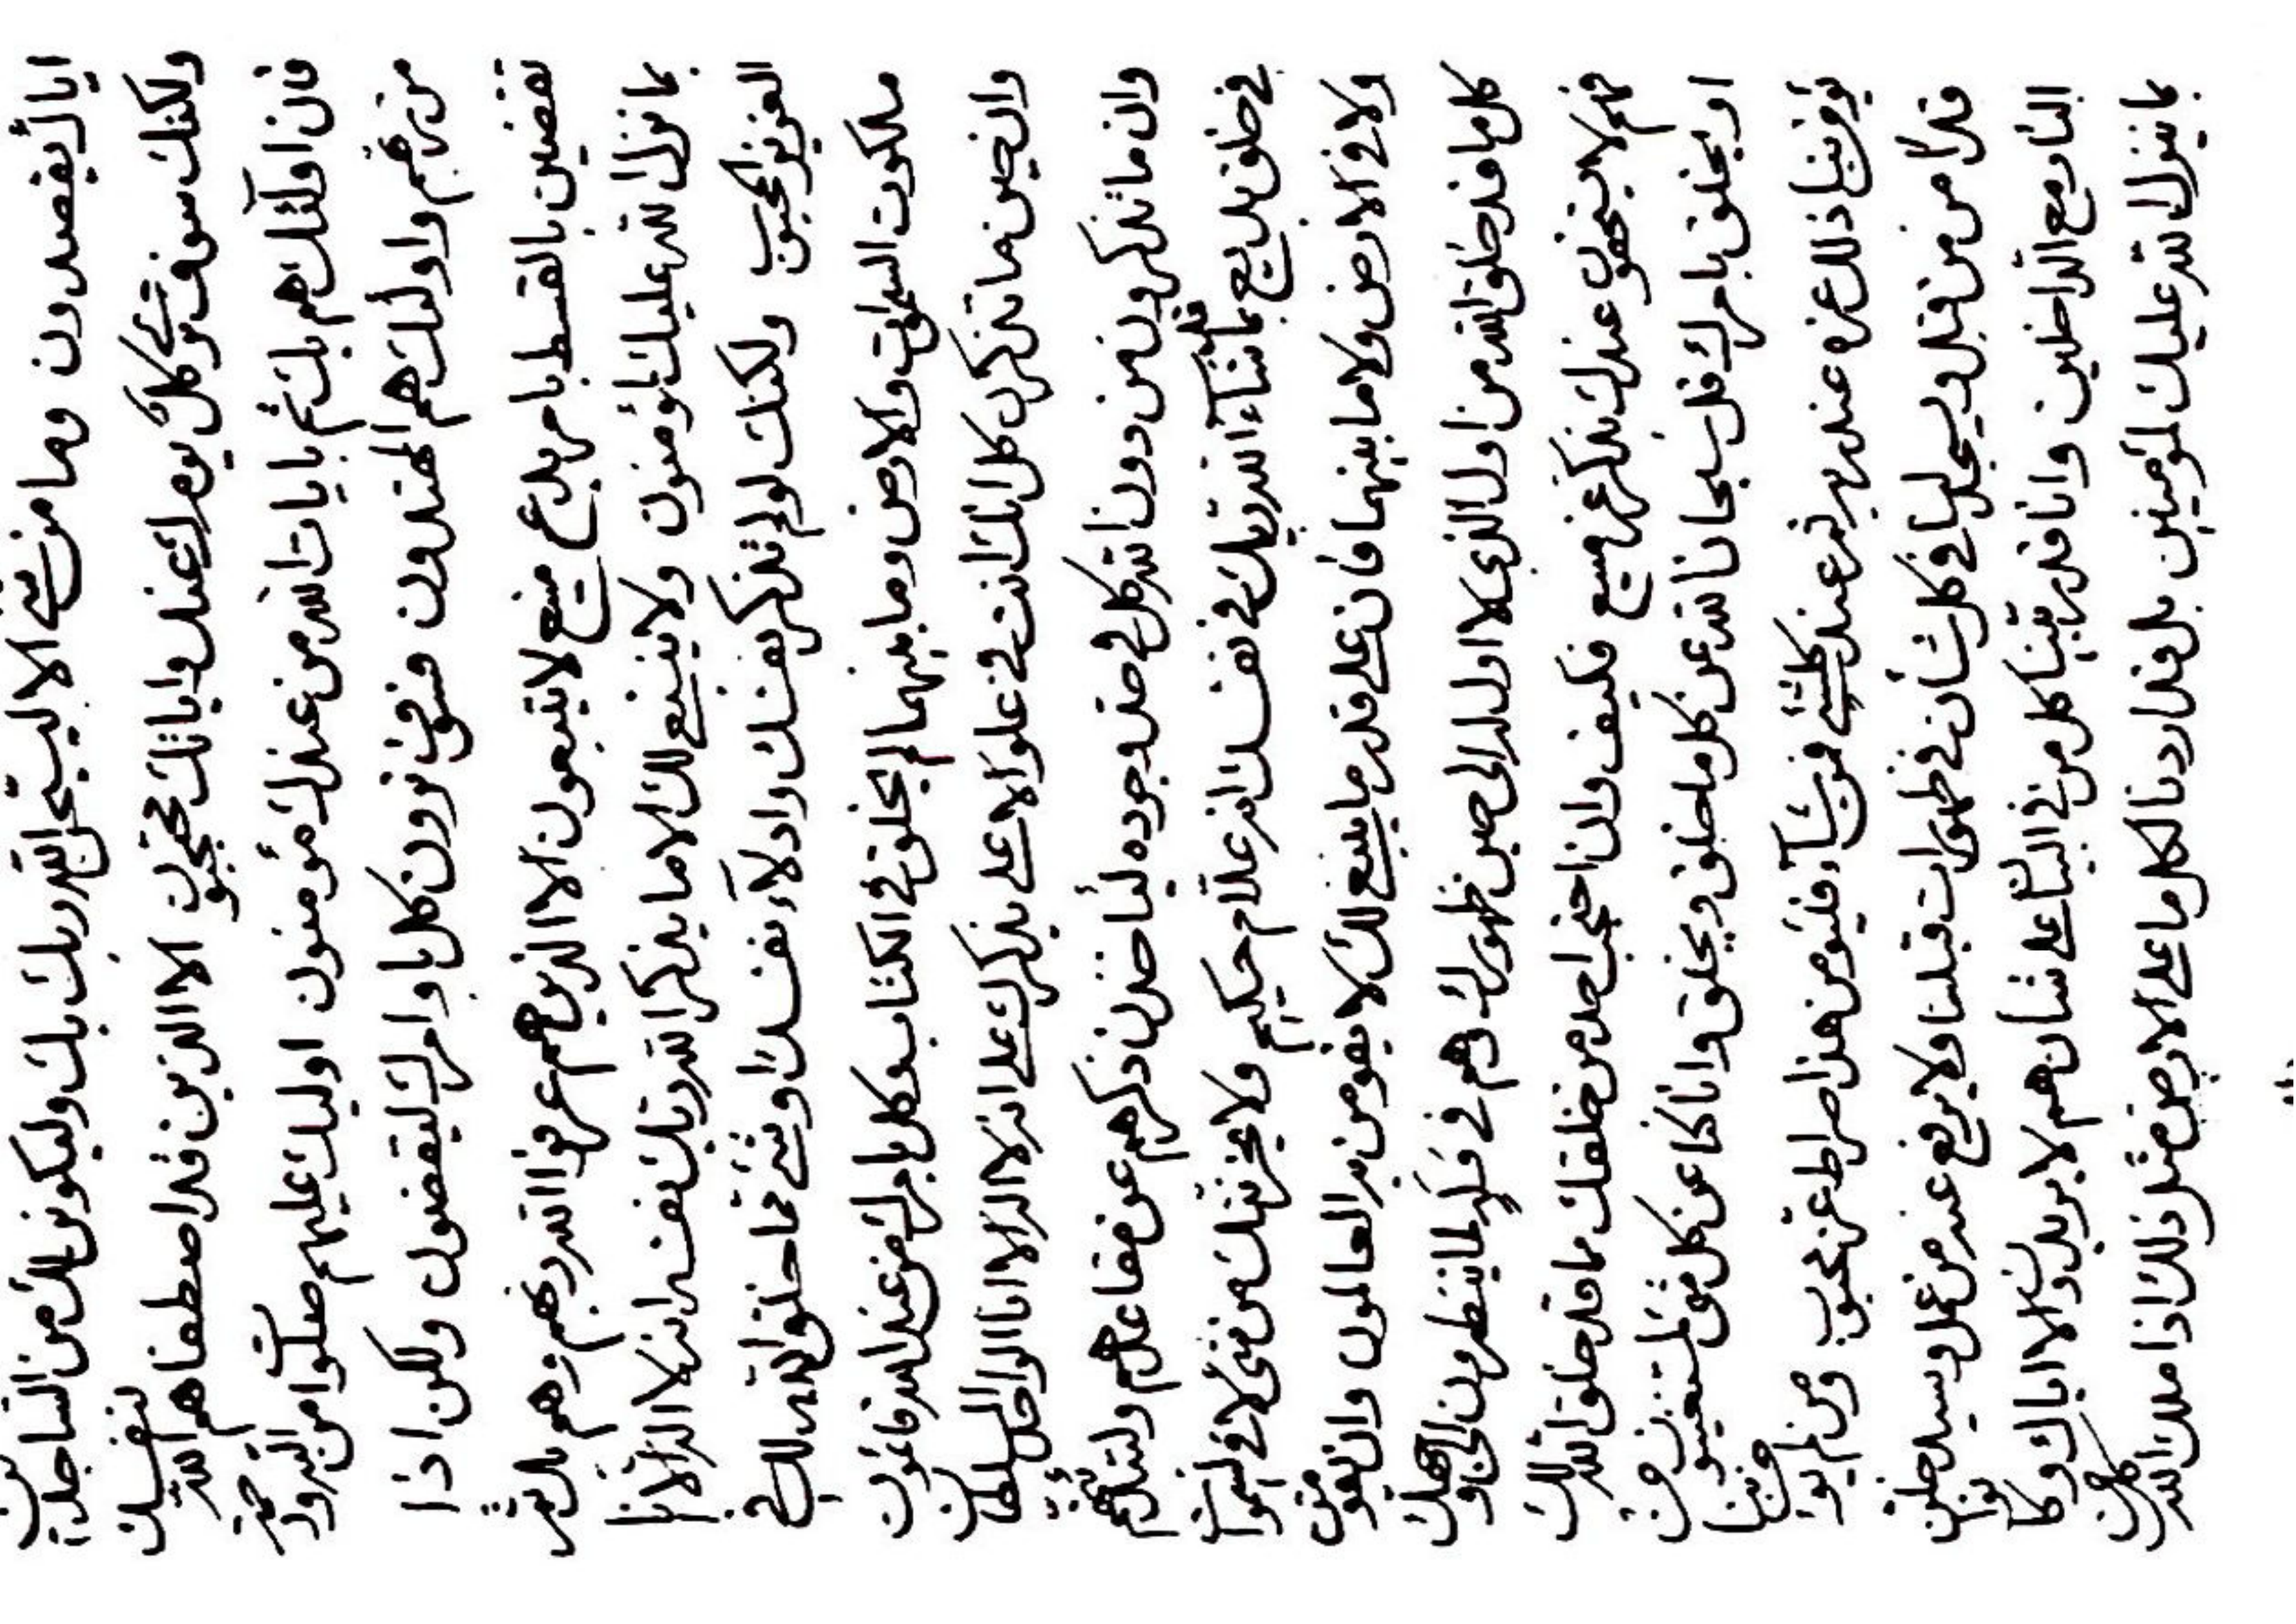 اياك يقصدون وما من شئ الا ليسبّحن الله ربك بك وليكونن لك من الساجدين
ولكنك سوف ترى كل عندك وايانك محتجبون الا الذين قد اصطفاهم الله لنفسك
فان اولئك هم بك ثم بايات الله من عندك مؤمنون اوليك عليهم صلوات من الله ورحمة
من ربهم واولئك هم المهتدون فسوف ترون كل باوامرك ليقضون ولكن اذا
تقضين بالقسط بامر بدع منيع لا يتبعون الا الذين هم عرفوا الله ربهم ثم هم بك
بما نزل الله عليك لمؤمنون ولا ينبغى لك الا ما يذكر الله ربك نفسه انه لا اله الا انا
العزيز المحبوب ولكنك لو لم تذكر بنفسك ادلاء نفسك او شئ مما خلق الله لك فى
ملكوت السموات والارض وما بينهما لم يخلق فى الكتاب وكل بامرك من عند الله قائمون
وان حين ما تذكرن كل انك انت فى علو الاعلى بذكرك على انه لا اله الا انا الواحد السلطان
وان ما تذكرون من دون الله كل فى حد وجوده ليأخذن ذكرهم عن مقاعدهم ولتبدلنهم
فى خلق بديع بما شاء الله ربك فى نفسك انه علام حكيم ولا يحزنك من شئ لا فى السموات
ولا فى الارض ولا ما بينهما فان على قدر ما ينبغى لك لا يقومن به العالمون وان يقومن
كل ما قد خلق الله من اول الذى لا اول له الى حين ظهورك وهم فى لما ينتظرون الى وجهك
فهم لا يستحقون عندك بذكر عز منيع فكيف وان احتجب احد من خلقك مما قد خلق الله لك
او يخلق بامرك قل سبحان الله عن كل ما خلق ويخلق وانا كنا عن كل شئ لمستغنيون من
يؤمن بنا ذلك عزه عند ربه ثم عند كلشئ فمن شاء فليؤمن هذا صراط عز محبوب ومن لم يؤمن بنا
قدراً من قبل ويسجد لنا فى كل شأن فى ظهورات قبلنا ولا يرفع عنه من عمل وسيدخلن
النار مع الداخلين وانا قد ربينا كل من فى البيان على شأن هم لا يريدون الا اياك وكانوا
بما ينزل الله عليك لمؤمنين بل قد اردنا لكل ما على الارض مثل ذلك اذا ملك الله كلهن